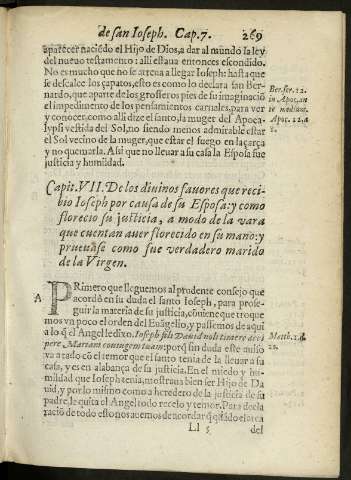 de san Ioseph. Cap. 7. 269
aparecer naciẽdo el Hijo de Dios, a dar al mundo la ley
del nueuo testamento: alli estaua entonces escondido.
No es mucho que no se atreua a llegar Ioseph: hasta que
se descalce los çapatos, esto es como lo declara san Ber-
nardo, que aparte de los grosseros pies de su imaginaciõ
el impedimento de los pensamientos carnales, para ver
y conocer, como alli dize el santo, la muger del Apoca-
lypsi vestida del Sol, no siendo menos admirable estar
el Sol vezino de la muger, que estar el fuego en la çarça
y no quemarla. Assi que no lleuar a su casa la Esposa fue
justicia y humildad.
Ber. ser. 12.
in Apoc. an
te medium.
Apoc. 12. a
Capit. VII. De los diuinos fauores que reci-
bio Ioseph por causa de su Esposa: y como
florecio su justicia, a modo de la vara
que cuentan auer florecido en su mano: y
prueuase como fue verdadero marido
de la Virgen.
A
PRimero que lleguemos al prudente consejo que
acordò en su duda el santo Ioseph, para prose-
guir la materia de su justicia, cõuiene que troque
mos vn poco el orden del Euãgelio, y passemos de aqui
a lo q̃ el Angel le dixo, Ioseph fili Dauid noli timere acci
pere Mariam coniugem tuam: porq̃ sin duda este auiso
va atado cõ el temor que el santo tenia de la lleuar a su
casa, y es en alabança de su justicia. En el miedo y hu-
mildad que Ioseph tenia, mostraua bien ser Hijo de Da
uid, y por lo mismo como a heredero de la justicia de su
padre, le quita el Angel todo recelo y temor. Para decla
racio de todo esto nos auemos de acordar q̃ quãdo el arca
Matth. 1. d.
20.
Ll 5 del